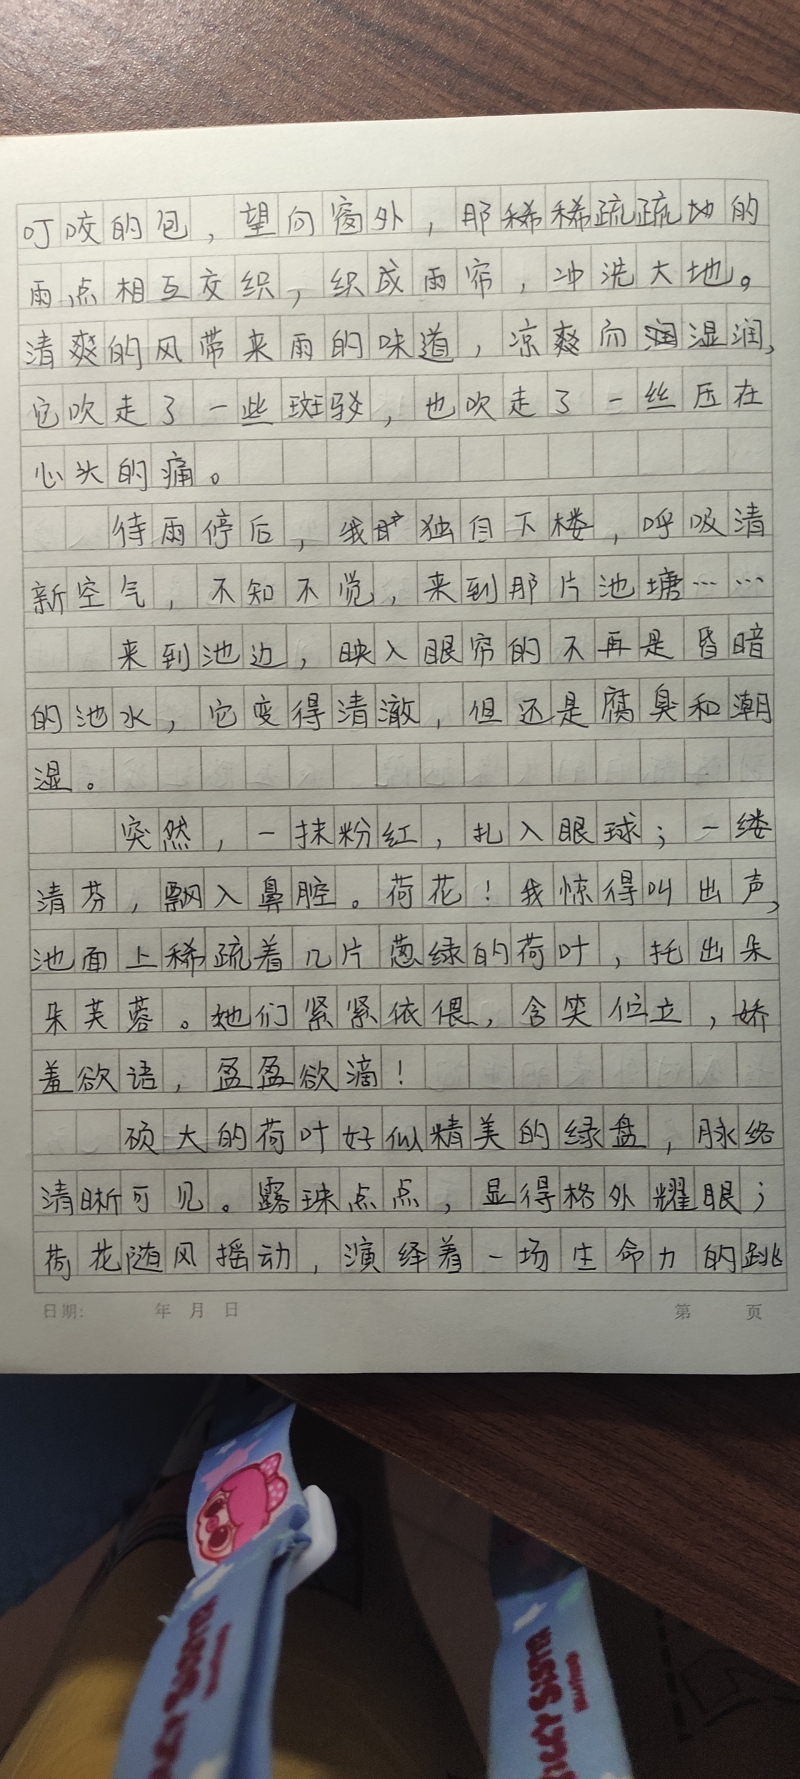 叮咬的包，望向窗外，那稀稀疏疏地的
雨点相互交织，织成雨帘，冲洗大地。
清爽的风带来雨的味道，凉爽而湿润，
它吹走了一些斑驳，也吹走了一丝压在
心头的痛。
待雨停后，我独自下楼，呼吸清
新空气，不知不觉，来到那片池塘……
来到池边，映入眼帘的不再是昏暗
的池水，它变得清澈，但还是腐臭和潮
湿。
突然，一抹粉红，扎入眼球；一缕
清芬，飘入鼻腔。荷花！我惊得叫出声，
池面上稀疏着几片葱绿的荷叶，托出朵
朵芙蓉。她们紧紧依偎，含笑伫立，娇
羞欲语，盈盈欲滴！
硕大的荷叶好似精美的绿盘，脉络
清晰可见。露珠点点，显得格外耀眼；
荷花随风摇动，演绎着一场生命力的跳
日期:　年 月 日　第　页